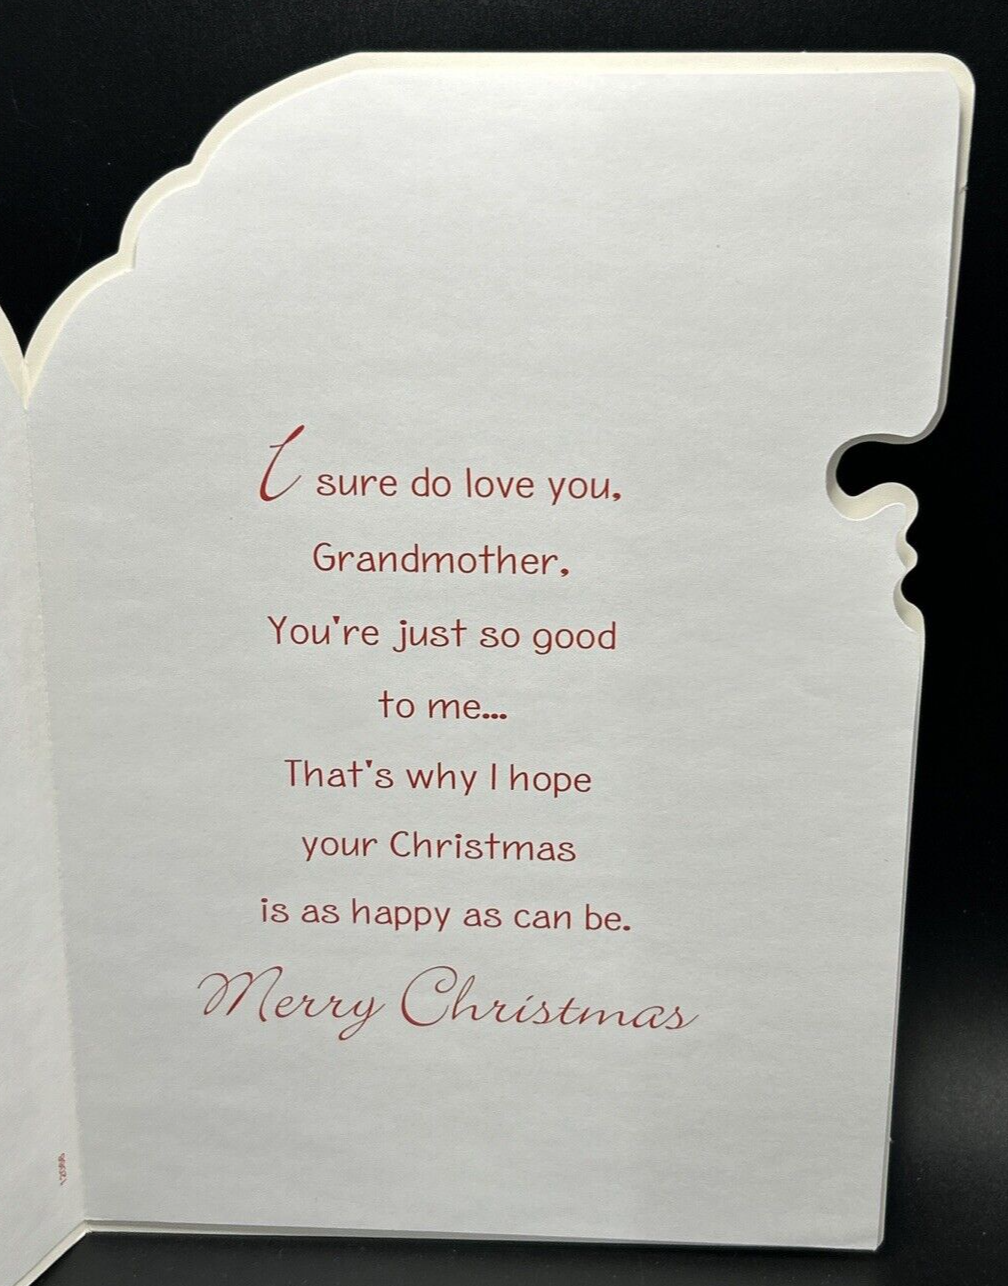 I sure do love you,
Grandmother,
You're just so good
to me...
That's why I hope
your Christmas
is as happy as can be.
Merry Christmas